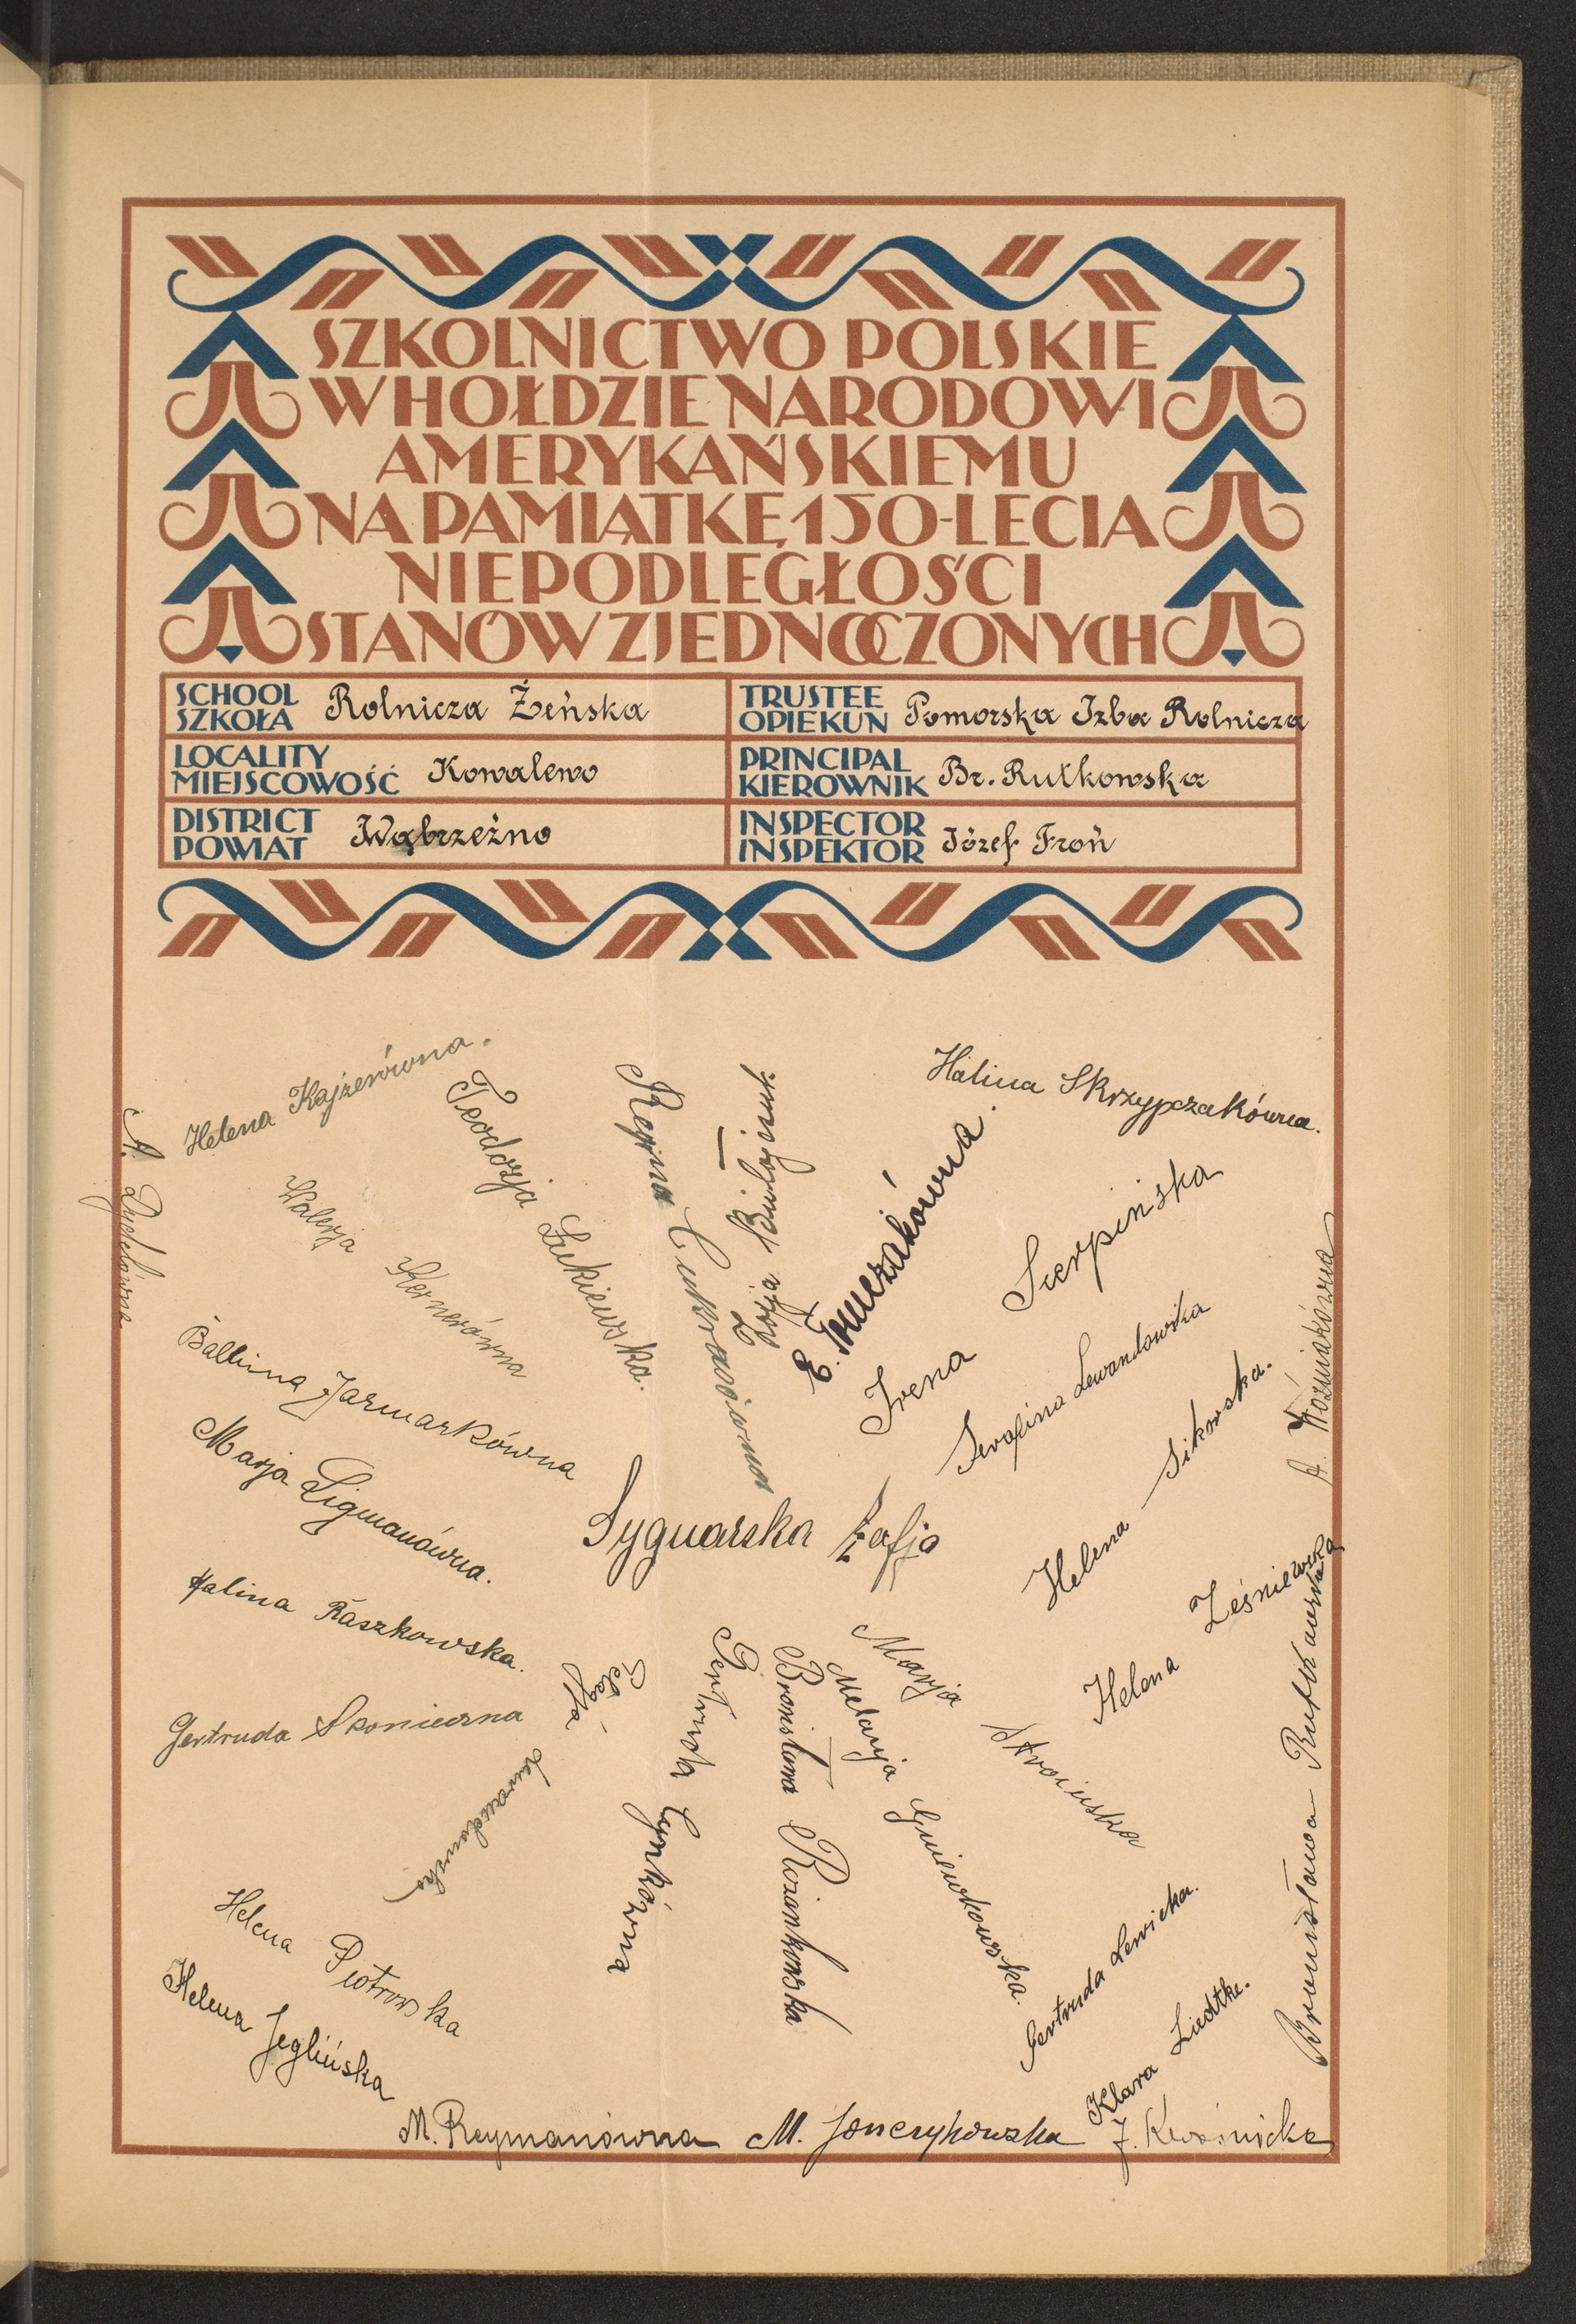 SZKOLNICTWO POLSKIE
W HOŁDZIE NARODOWI
AMERYKAŃSKIEMU
NA PAMIĄTKĘ 150-LECIA
NIEPODLEGŁOŚCI
STANÓW ZJEDNOCZONYCH
SCHOOL
SZKOŁA Rolnicza Żeńska
TRUSTEE
OPIEKUN Pomorska Izba Rolnicza
LOCALITY
MIEJSCOWOŚĆ Kowalewo
PRINCIPAL
KIEROWNIK Br. Rutkowska
DISTRICT
POWIAT Wąbrzeźno
INSPECTOR
INSPEKTOR Józef Froń
Helena Kajzerówna.
A.
Walerja Kernerówna
Teodozja Łukiewska.
Regina
Zofja
E. Tomczakówna
Halina Skrzypczakówna.
Irena Sierpińska
Serafina Lewandowska
Helena Sikorska.
A. Woźniakówna
Balbina Jarmarkówna
Marja Ligmanówna.
Sygnarska Zofja
Halina Raszkowska.
Gertruda Skonieczna
Pelagja Lewandowska
Gertruda Cynkówna
Bronisława Rozankowska
Melanja Gniewkowska.
Marja Stroińska
Helena Leśniewska
Bronisława Rutkowska
Gertruda Lewicka.
Klara Liedtke.
Helena Piotrowska
Helena Jeglińska
M. Reymanówna
M. Jonczykowska
J.